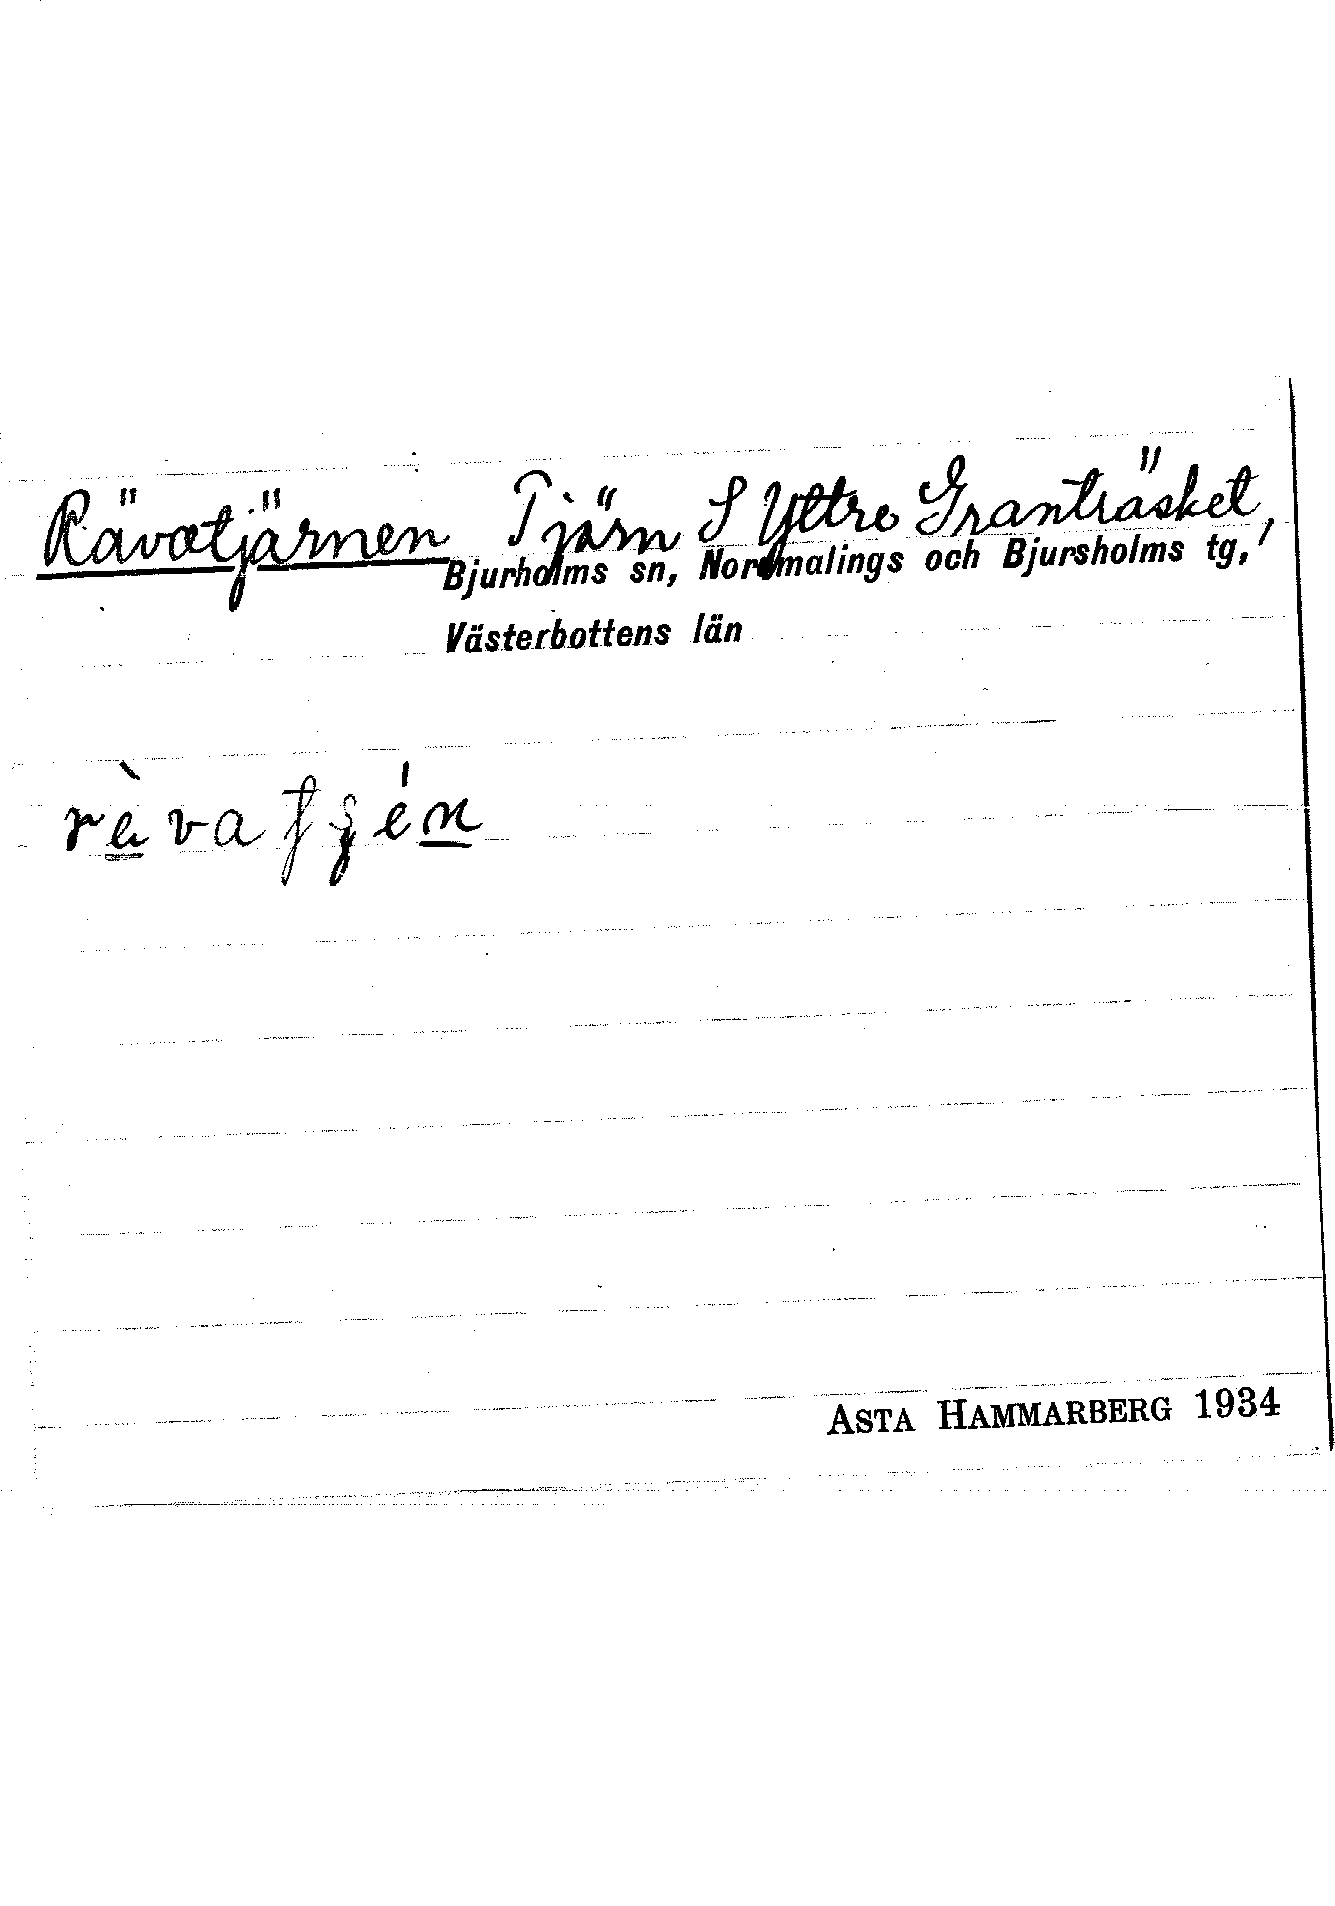 Rävatjärnen Tjärn S Yttre Granträsket,
Bjurholms sn, Nordmalings och Bjursholms tg,
Västerbottens län
ASTA HAMMARBERG 1934